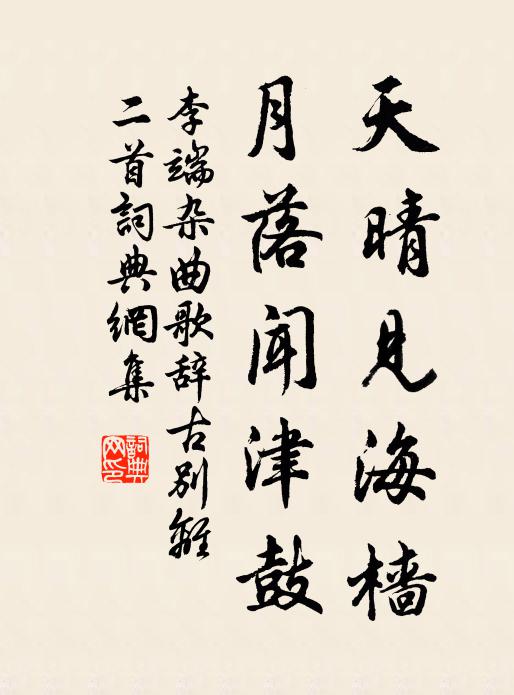 天晴見海檣
月落聞津鼓
李端杂曲歌辞古别離
二首詞典網集
詞典网印